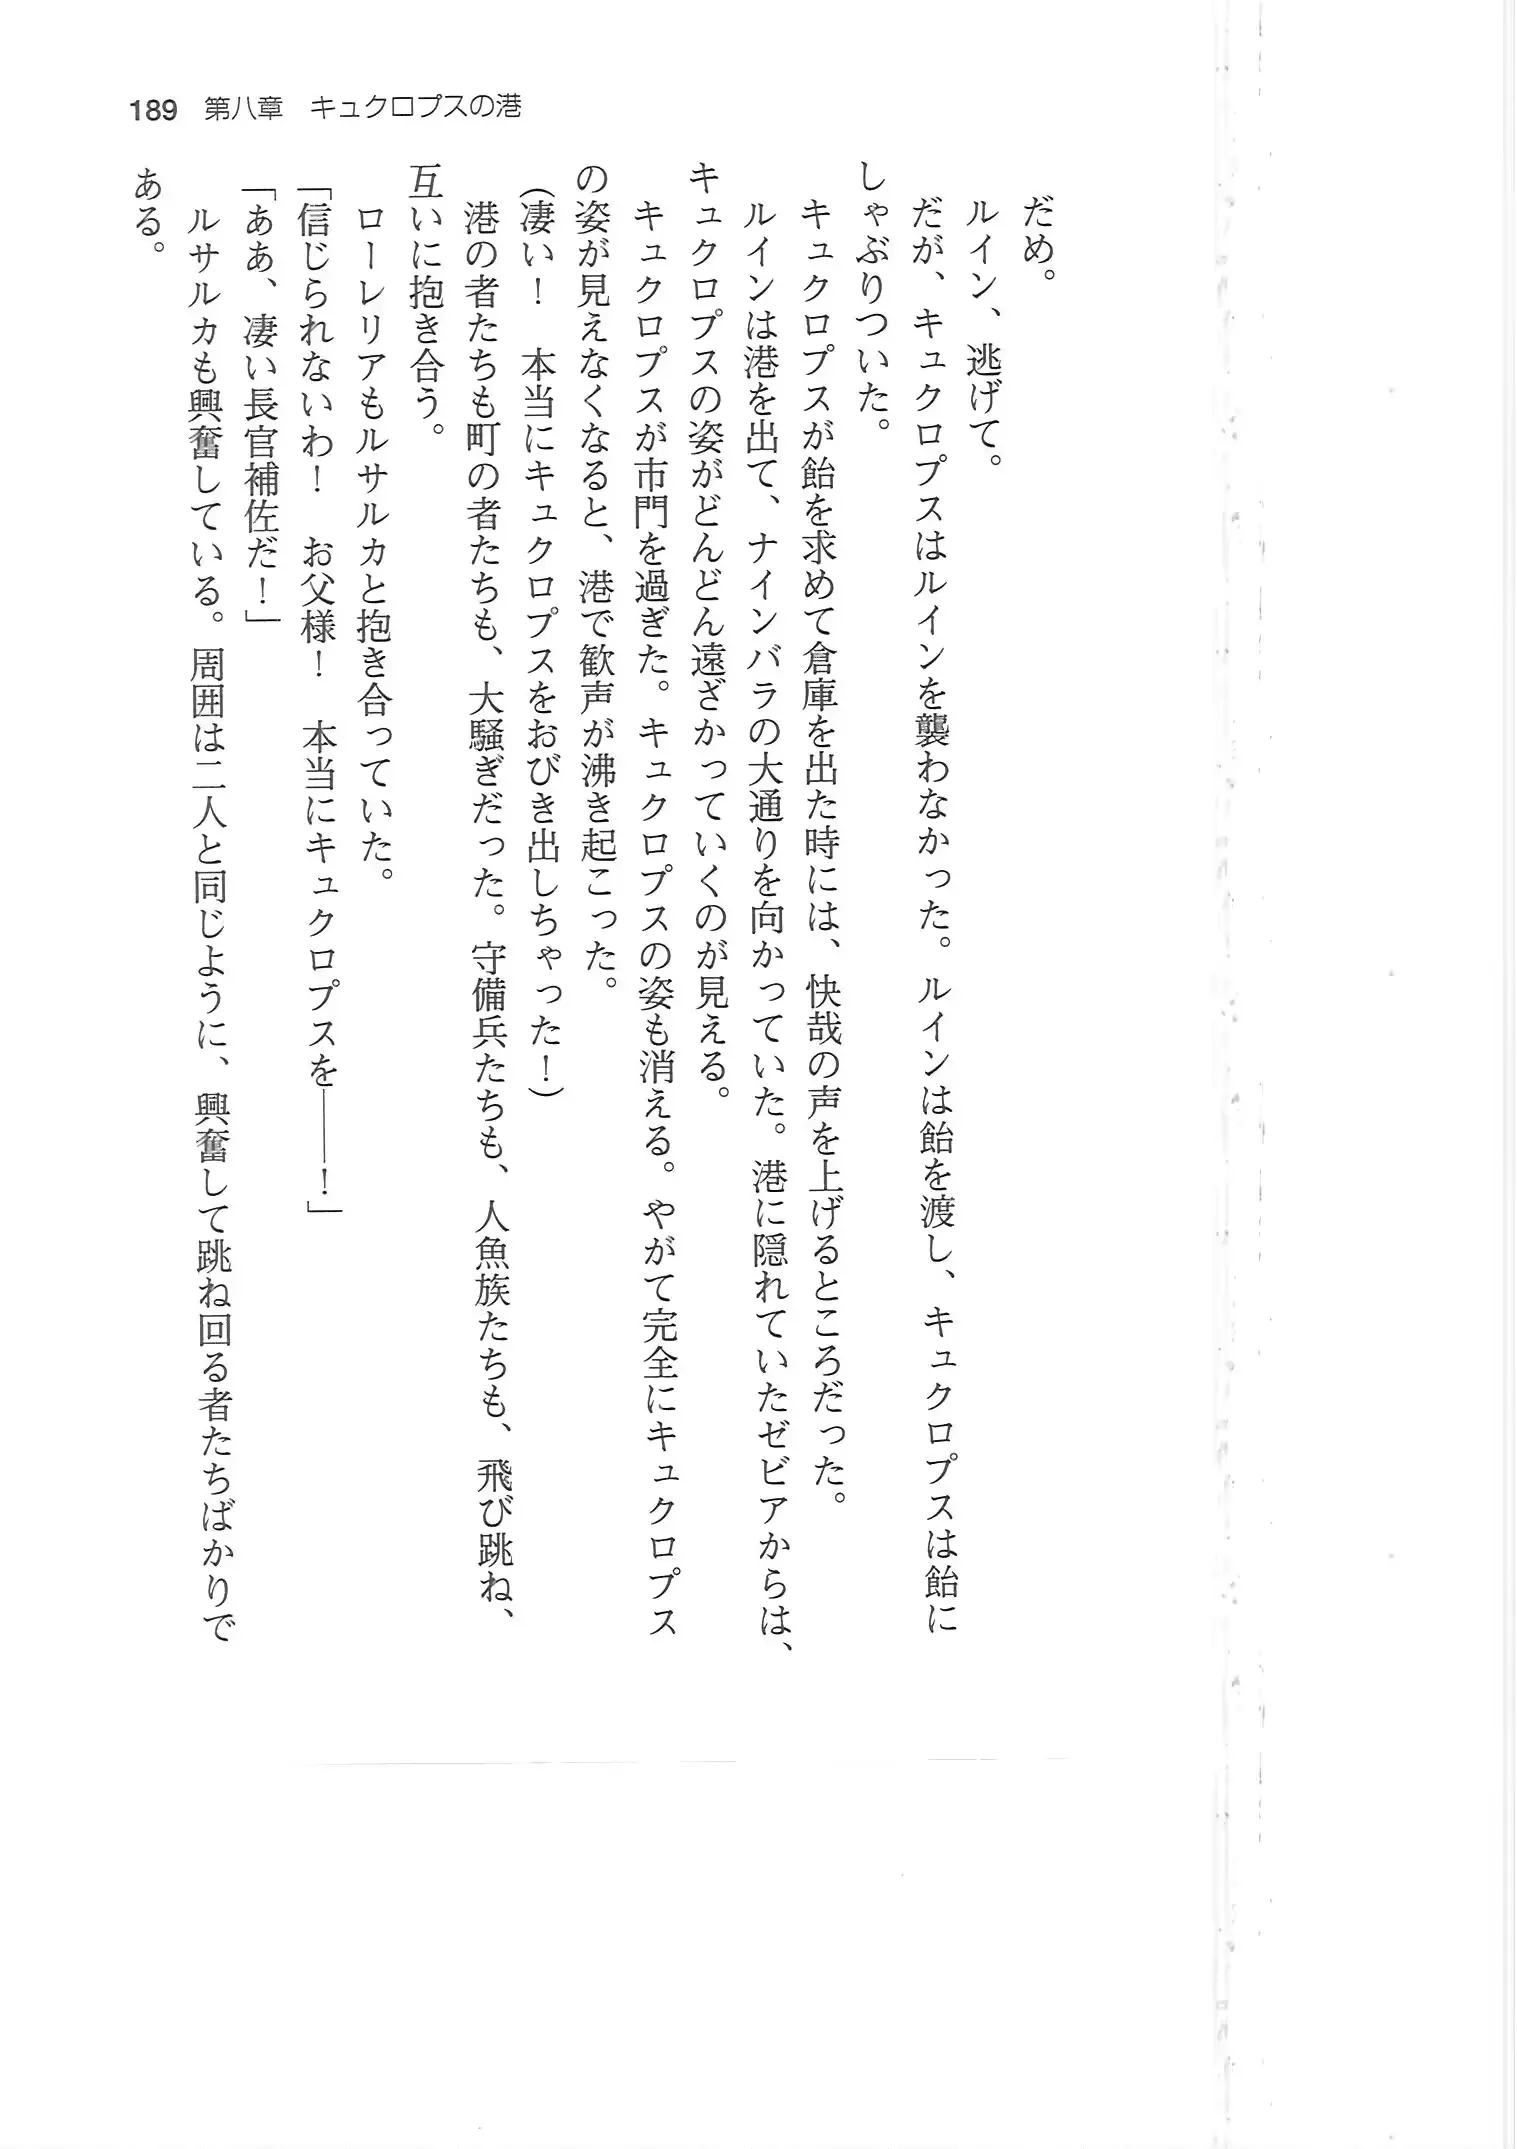 189 第八章 キュクロプスの港
だめ。
ルイン、逃げて。
だが、キュクロプスはルインを襲わなかった。ルインは飴を渡し、キュクロプスは飴に
しゃぶりついた。
キュクロプスが飴を求めて倉庫を出た時には、快哉の声を上げるところだった。
ルインは港を出て、ナインバラの大通りを向かっていた。港に隠れていたゼビアからは、
キュクロプスの姿がどんどん遠ざかっていくのが見える。
キュクロプスが市門を過ぎた。キュクロプスの姿も消える。やがて完全にキュクロプス
の姿が見えなくなると、港で歓声が沸き起こった。
(凄い! 本当にキュクロプスをおびき出しちゃった!)
港の者たちも町の者たちも、大騒ぎだった。守備兵たちも、人魚族たちも、飛び跳ね、
互いに抱き合う。
ローレリアもルサルカと抱き合っていた。
「信じられないわ! お父様! 本当にキュクロプスを――!」
「ああ、凄い長官補佐だ!」
ルサルカも興奮している。周囲は二人と同じように、興奮して跳ね回る者たちばかりで
ある。